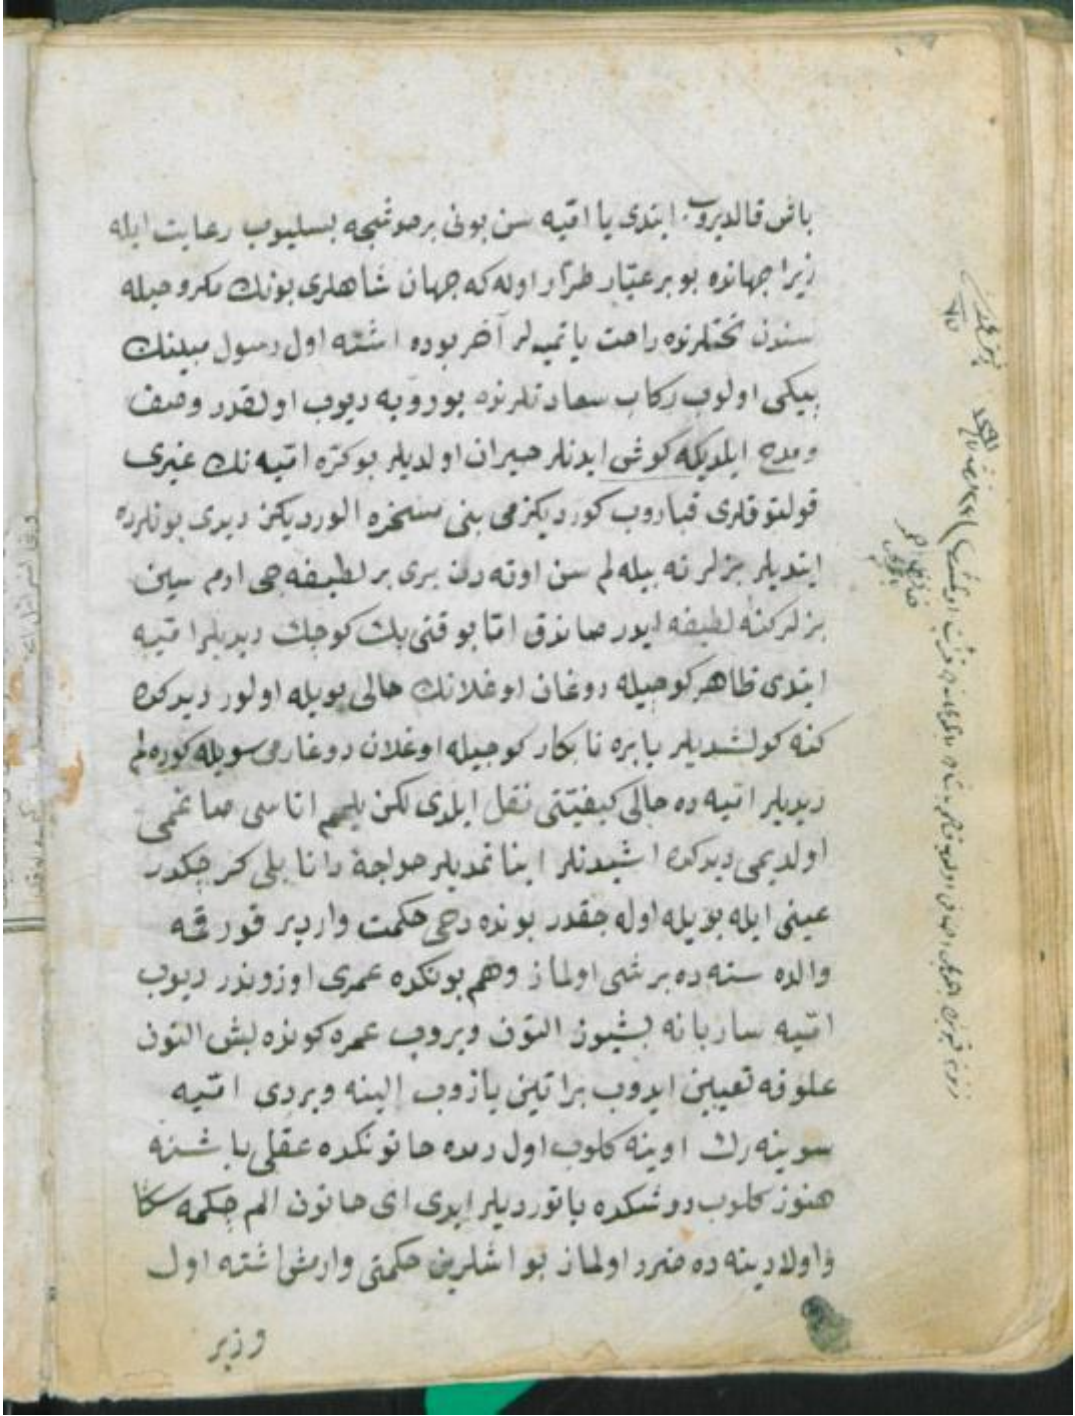 باش قالديروب ايتدى يا اميه سن بونى برخوشجه بسليوب رعايت ايله
زيرا جهانده بو بر عيّار طرّار اوله كه جهان شاهلرى بونك مكر و حيله
سندن تختلرنده راحت ياتميه لر آخر بوده اشته اول رسول مبينك
پيكى اولوب ركاب سعادتلرنده يورويه ديوب اولقدر وصف
و مدح ايلديكه كوش ايدنلر حيران اولديلر بو كره اميه نك غيرى
قولتوقلرى قباروب كورديكزمى بنى مسخره الورديكز ديدى بونلرده
ايتديلر بزلر نه بيله لم سن اوته دن برى بر لطيفه جى ادم سين
بزلر كنه لطيفه ايدر صاندق امّا بو قتى پك كوجك ديديلر اميه
ايتدى ظاهر كوجيله دوغان اوغلانك حالى بويله اولور ديدكده
كنه كولشديلر يا بره نابكار كوجيله اوغلان دوغارمى سويله كوره لم
ديديلر اميه ده حالى كيفيتنى نقل ايلدى لكن بيلمم اناسى صاغمى
اولديمى ديدكده اشيدنلر اينانمديلر خواجۀ دانا بلى كرجكدر
عينى ايله بويله اوله جقدر بونده دخى حكمت واردر قورقمه
والده سنه ده بر شى اولماز و هم بونكده عمرى اوزوندر ديوب
اميه ساربانه بشيوز التون ويروب عمره كونده بش التون
علوفه تعيين ايدوب براتين يازوب الينه ويردى اميه
سوينه رك اوينه كلوب اول دمده خاتونكده عقلى باشنه
هنوز كلوب دوشكده ياتورديلر ايدى اى خاتون الم چكمه سكا
و اولادينه ده ضرر اولماز بو اشلرين حكمتى وارمش اشته اول
وزير